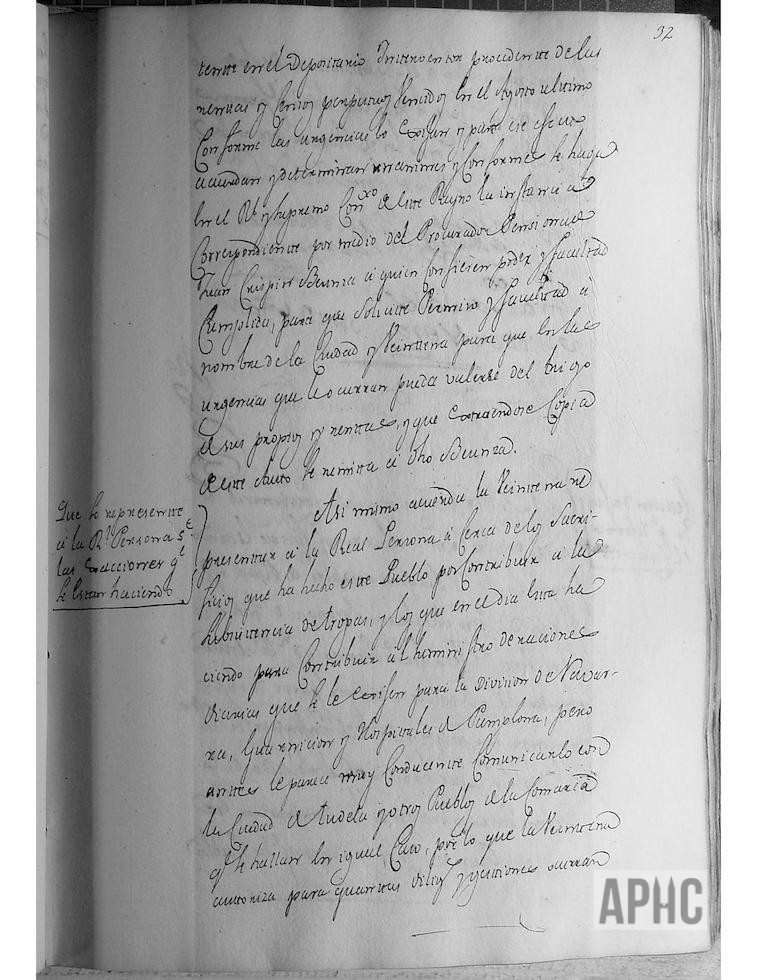 32
tente en el Depositario Interventor procedente de las
rentas y Censos perpetuos vencidos en el Agosto ultimo
Conforme las urgencias lo exijan y para ese efecto
acuerdan y determinan unanimes y Conformes se haga
en el Rl. y Supremo Conxo. de este Reyno la instancia
Correspondiente por medio del Procurador Pensionado
Juan Crispin Beunza a quien confieren poder y facultad
Cumplida, para que Solicite Permiso y facultad a
nombre de la Ciudad y Veintena para que en las
urgencias que le ocurran pueda valerse del trigo
de sus propios y rentas, y que extraendose Copia
de este Auto se remita a dho Beunza.
Que se represente
a la Rl. Persona se.
las exacciones qe.
se estan haciendo
Asi mismo acuerda la Veintena re
presentar a la Real Persona a cerca de los Sacri-
ficios que ha hecho este Pueblo por contribuir a la
subsistencia de tropas, y los que en el dia esta ha
ciendo para Contribuir al suministro de raciones
diarias que se le exijen para la Division de Navar-
ra, Guarnicion y Hospitales de Pamplona, pero
antes le parece muy Conducente Comunicarlo con
la Ciudad de Tudela y otros Pueblos de la Comarca
qe. se hallan en igual Caso, por lo que la Veintena
autoriza para quantas diligs. y gestiones ocurran
APHC